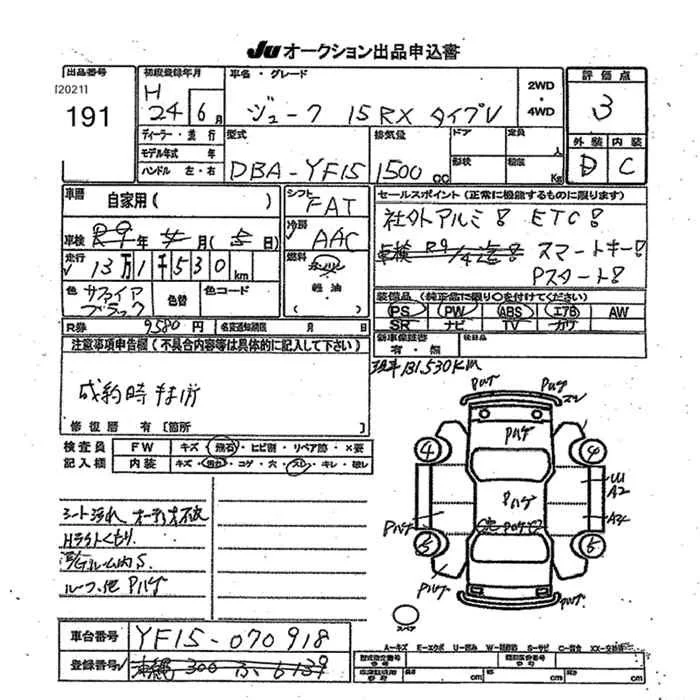 Ju オークション出品申込書
出品番号
[2021]
191
初度登録年月
H 24年 6月
車名・グレード
ジューク 15RX タイプV
2WD
・
4WD
評価点
3
外装 内装
D C
ディーラー・並行
モデル年式 年
ハンドル 左・右
型式
DBA-YF15
排気量
1500 CC
ドア
定員
人
形状
積載
Kg
車歴
自家用( )
車検 R9年 4月( )日
走行
13万1千530 km
色
サファイア
ブラック
色替
色コード
シフト
FAT
冷房
AAC
燃料
ガソリン
軽油
セールスポイント(正常に機能するものに限ります)
社外アルミ! ETC!
車検 R9/4迄! スマートキー!
Pスタート!
装備品(純正品に限り○を付けてください)
PS PW ABS エアB AW
SR ナビ TV カワ
R券 9580円
名変通知期限 月 日
新車保証書
有・無
後日品
現車131,530KM
注意事項申告欄(不具合内容等は具体的に記入して下さい)
成約時
修復歴 有 [箇所
検査員
記入欄
FW キズ・飛石・ヒビ割・リペア跡・×要
内装 キズ・切れ・コゲ・穴・スレ・キレ・破レ
シート汚れ オーディオ不良
Hライトくもり
ルーム内S
ルーフ、他 Pハゲ
Pハゲ
Pハゲ
Pハゲ
Pハゲ
Pハゲ
Pハゲ
4
4
5
5
U1
A2
A4
スペア
車台番号 YF15-070918
登録番号 沖縄 300 ふ 6139
A-キズ E-エクボ U-凹み W-補修跡 S-サビ C-腐食 XX-交換済
型式指定番号
類別区分番号
cm cm cm